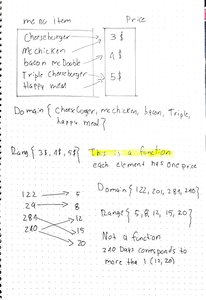 menu item Price
Cheeseburger 3 $
Mcchicken
bacon mcDouble 4 $
Triple cheeseburger 5 $
Happy meal
Domain { Cheeseburger, mcchicken, bacon, Triple,
happy meal }
Rang { 3$, 4$, 5$ } This is a function
each element has one price
122 5
29 8
281 12
210 15
20
Domain { 122, 201, 281, 210 }
Range { 5, 8, 12, 15, 20 }
Not a function
210 Days corresponds to
more tha 1 (12, 20)